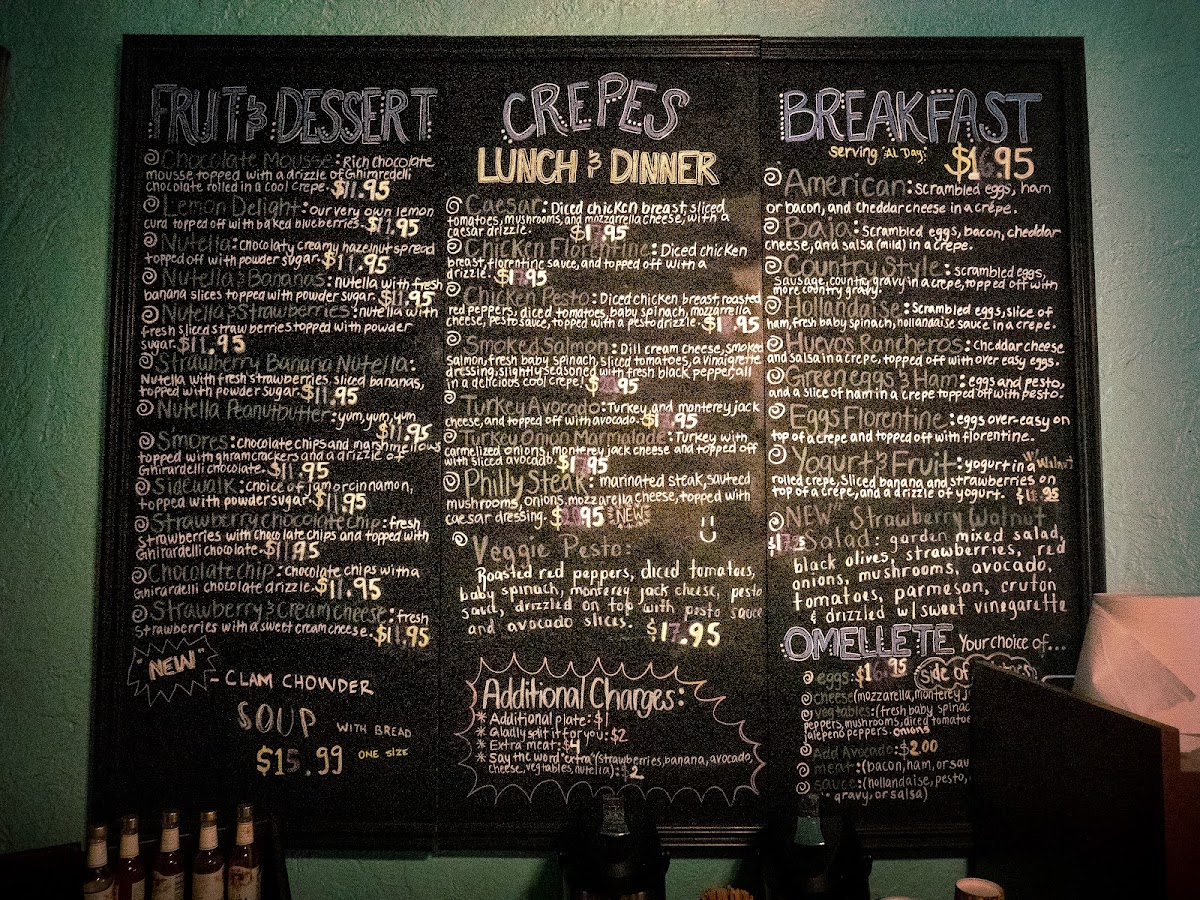 FRUIT & DESSERT
Chocolate Mousse: Rich chocolate
mousse topped with a drizzle of Ghirardelli
chocolate rolled in a cool crepe. $11.95
Lemon Delight: our very own lemon
curd topped off with baked blueberries. $11.95
Nutella: chocolaty creamy hazelnut spread
topped off with powder sugar. $11.95
Nutella & Bananas: nutella with fresh
banana slices topped with powder sugar. $11.95
Nutella & Strawberries: nutella with
fresh sliced strawberries topped with powder
sugar. $11.95
Strawberry Banana Nutella:
Nutella with fresh strawberries, sliced bananas,
topped with powder sugar. $11.95
Nutella Peanutbutter: yum, yum, yum
$11.95
Smores: chocolate chips and marshmellows
topped with ghramcrackers and a drizzle of
Ghirardelli chocolate. $11.95
Sidewalk: choice of jam or cinnamon,
topped with powder sugar. $11.95
Strawberry chocolate chip: fresh
strawberries with chocolate chips and topped with
Ghirardelli chocolate. $11.95
Chocolate chip: chocolate chips with a
Ghirardelli chocolate drizzle. $11.95
Strawberry & Creamcheese: fresh
strawberries with a sweet cream cheese. $11.95
"NEW"
- CLAM CHOWDER
SOUP WITH BREAD
$15.99 ONE SIZE
CREPES
LUNCH & DINNER
Caesar: Diced chicken breast, sliced
tomatoes, mushrooms, and mozzarrella cheese, with a
caesar drizzle. $17.95
Chicken Florentine: Diced chicken
breast, florentine sauce, and topped off with a
drizzle. $17.95
Chicken Pesto: Diced chicken breast, roasted
red peppers, diced tomatoes, baby spinach, mozzarella
cheese, pesto sauce, topped with a pesto drizzle.
Smoked Salmon: Dill cream cheese, smoked
salmon, fresh baby spinach, sliced tomatoes, a vinaigrette
dressing, slightly seasoned with fresh black pepper, all
in a delicious cool crepe!
Turkey Avocado: Turkey and monterey jack
cheese, and topped off with avocado.
Turkey Onion Marmalade: Turkey with
carmelized onions, monterey jack cheese and topped off
with sliced avocado. $17.95
Philly Steak: marinated steak, sauteed
mushrooms, onions, mozzarella cheese, topped with
caesar dressing. NEW
Veggie Pesto:
Roasted red peppers, diced tomatoes,
baby spinach, monterey jack cheese, pesto
sauce, drizzled on top with pesto sauce
and avocado slices. $17.95
Additional Charges:
* Additional plate: $1
* Gladly split it for you: $2
* Extra meat: $4
* Say the word "extra" (strawberries, banana, avocado,
cheese, vegtables, nutella): $2
BREAKFAST
serving "Al Day" $16.95
American: scrambled eggs, ham
or bacon, and cheddar cheese in a crêpe.
Baja: Scrambled eggs, bacon, cheddar
cheese, and salsa (mild) in a crepe.
Country Style: scrambled eggs,
sausage, country gravy in a crepe, topped off with
more country gravy.
Hollandaise: Scrambled eggs, slice of
ham, fresh baby spinach, hollandaise sauce in a crepe.
Huevos Rancheros: cheddar cheese
and salsa in a crepe, topped off with over easy eggs.
Green eggs & Ham: eggs and pesto,
and a slice of ham in a crepe topped off with pesto.
Eggs Florentine: eggs over-easy on
top of a crepe and topped off with florentine.
Yogurt & Fruit: yogurt in a W/ Walnut
rolled crepe, Sliced banana and strawberries on
top of a crepe, and a drizzle of yogurt.
"NEW" Strawberry Walnut
Salad: garden mixed salad,
black olives, strawberries, red
onions, mushrooms, avocado,
tomatoes, parmeson, cruton
& drizzled w/ sweet vinegarette
OMELLETE Your choice of...
eggs: $16.95 Side of
cheese (mozzarella, monterey j
vegtables: (fresh baby spinac
peppers, mushrooms, diced tomatoe
jalepeno peppers. onions
Add Avocado: $2.00
meat: (bacon, ham, or sau
sauce: (hollandaise, pesto,
gravy, or salsa)